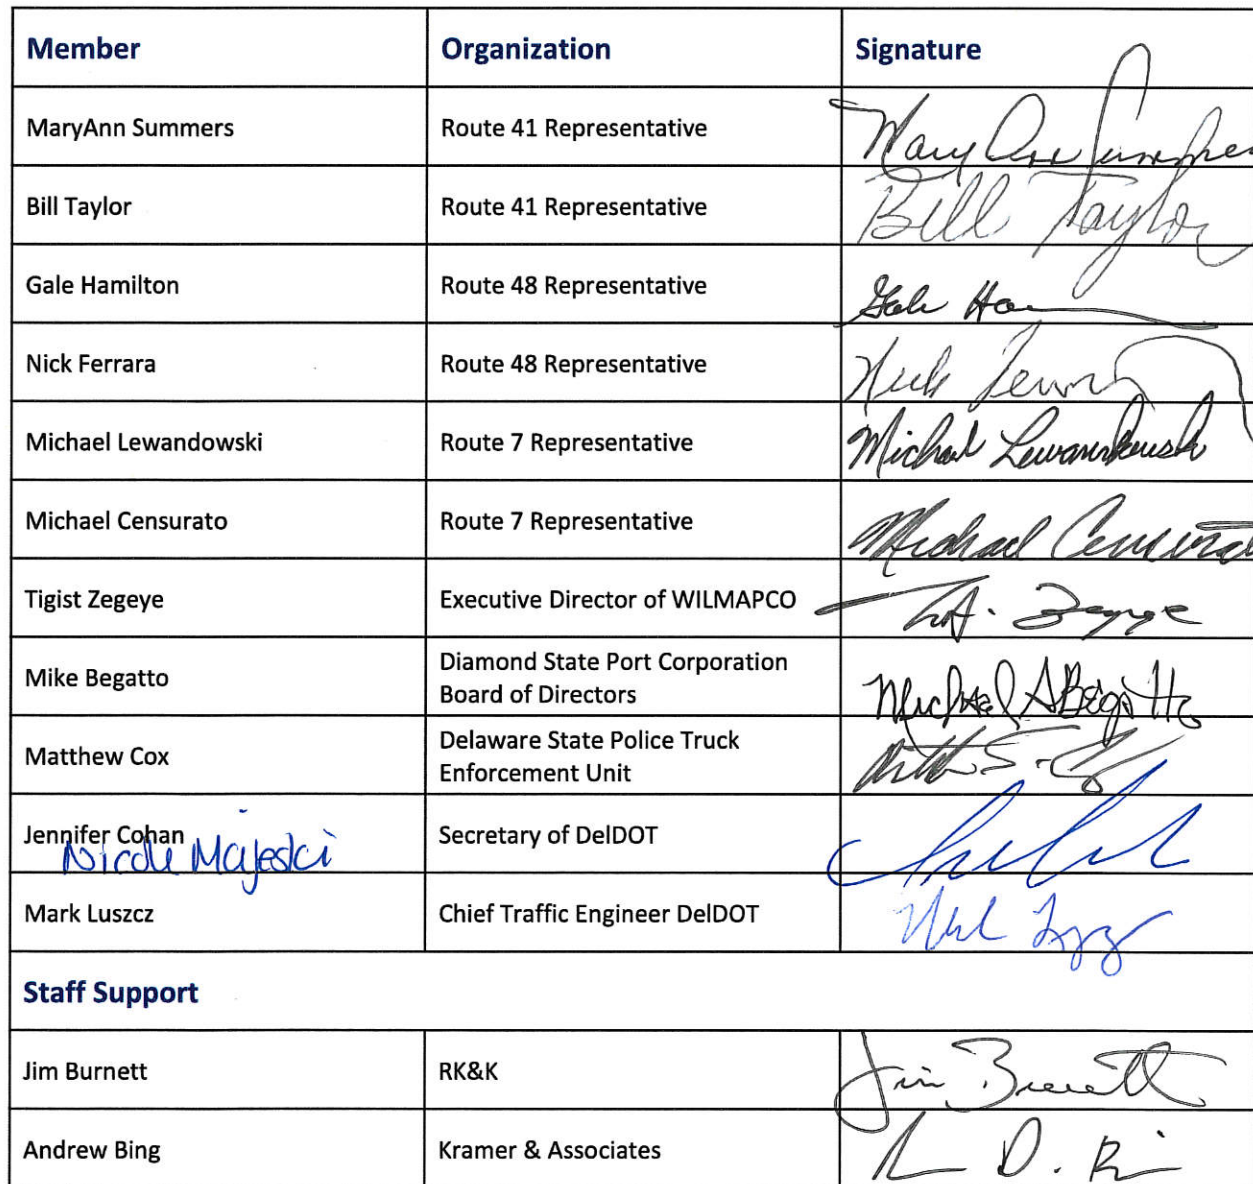 Member Organization Signature
MaryAnn Summers Route 41 Representative Mary Ann Summers
Bill Taylor Route 41 Representative Bill Taylor
Gale Hamilton Route 48 Representative Gale
Nick Ferrara Route 48 Representative Nick
Michael Lewandowski Route 7 Representative Michael Lewandowski
Michael Censurato Route 7 Representative Michael Censurato
Tigist Zegeye Executive Director of WILMAPCO
Mike Begatto Diamond State Port Corporation
Board of Directors Michael A Begatto
Matthew Cox Delaware State Police Truck
Enforcement Unit
Jennifer Cohan Secretary of DelDOT
Nicole Majeski
Mark Luszcz Chief Traffic Engineer DelDOT
Staff Support
Jim Burnett RK&K Jim Burnett
Andrew Bing Kramer & Associates